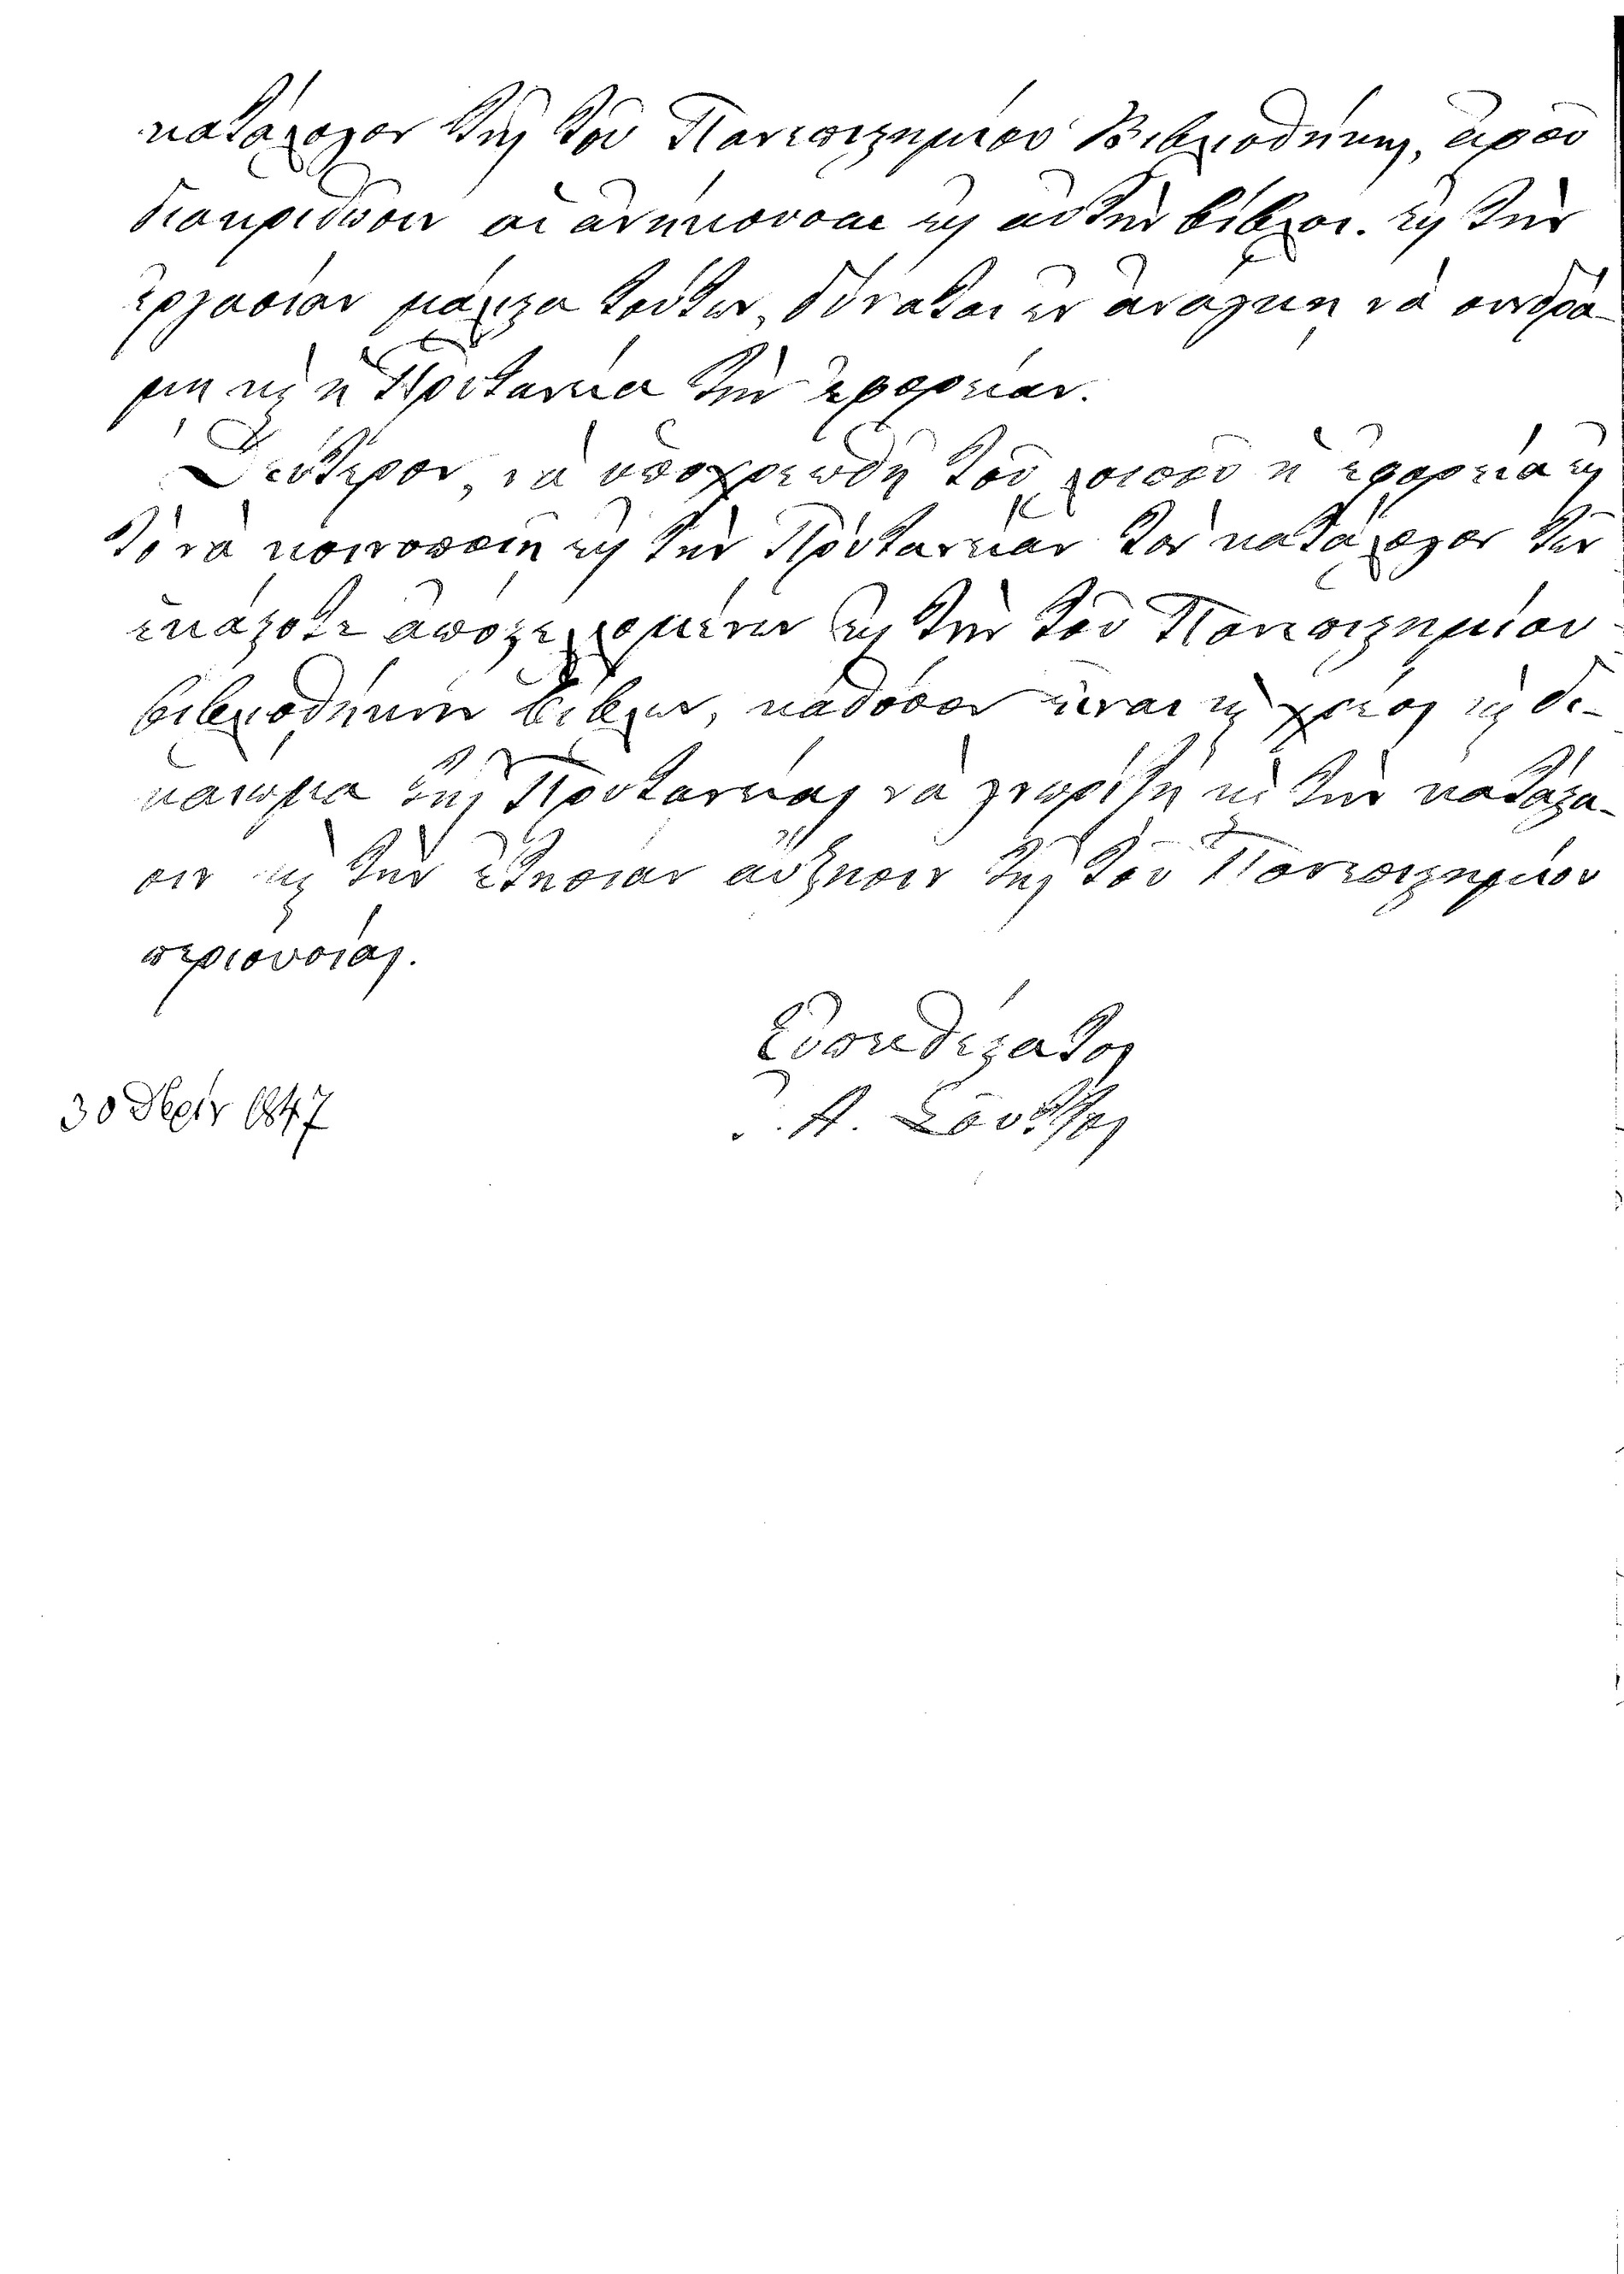 κατάλογον τῆς τοῦ Πανεπιστημίου Βιβλιοθήκης, ἀφοῦ
διακριθῶσιν αἱ ἀνήκουσαι εἰς αὐτὴν βίβλοι. εἰς τὴν
ἐργασίαν μάλιστα ταύτην, δύναται ἐν ἀνάγκῃ νὰ συνδρά-
μῃ καὶ ἡ Πρυτανεία τὴν ἐφορείαν.
Δεύτερον, νὰ ὑποχρεωθῇ τοῦ λοιποῦ ἡ ἐφορεία εἰς
τὸ νὰ κοινοποιῇ εἰς τὴν Πρυτανείαν τὸν κατάλογον τῶν
ἑκάστοτε ἀποστελλομένων εἰς τὴν τοῦ Πανεπιστημίου
βιβλιοθήκην βίβλων, καθόσον εἶναι καὶ χρέος καὶ δι-
καίωμα τῆς Πρυτανείας νὰ γνωρίζῃ καὶ τὴν κατάστα-
σιν καὶ τὴν ἐτησίαν αὔξησιν τῆς τοῦ Πανεπιστημίου
περιουσίας.
Εὐπειθέστατος
Α. Σοῦτσος
30 1847